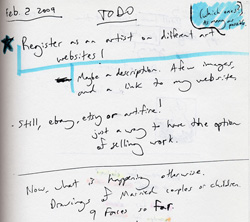 Feb. 2 2009
TODO
(which ones?)
as many as possible
Register as an artist on different art
websites!
Maybe a description. A few images,
and a link to my websites
- Still, ebay, etsy or artfire!
just a way to have the option
of selling work.
Now, what is happening otherwise.
Drawings of Married couples or children
9 faces so far.